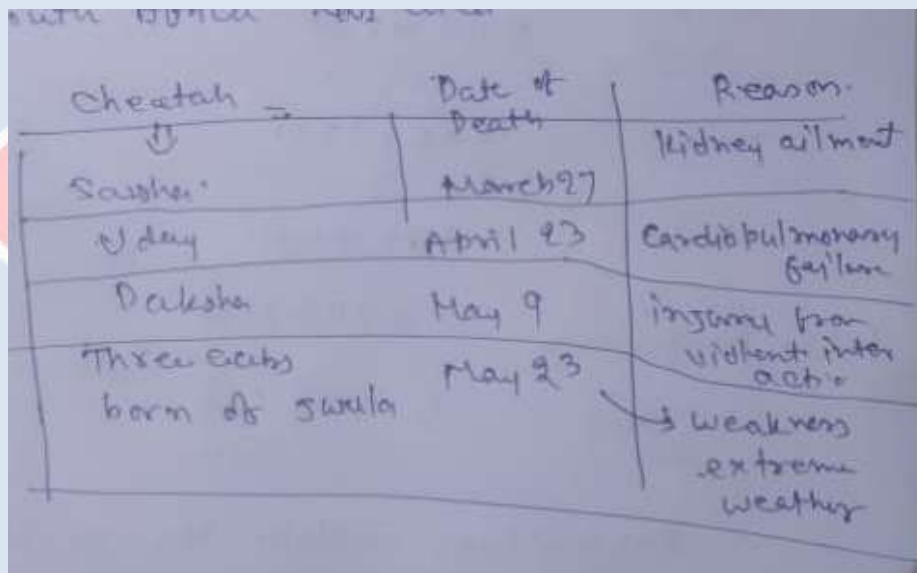 Cheetah Date of Death Reason.
Sasha March 27 Kidney ailment
Uday April 23 Cardiopulmonary failure
Daksha May 9 injury from violent inter action
Three cubs born of May 23 weakness extreme weather